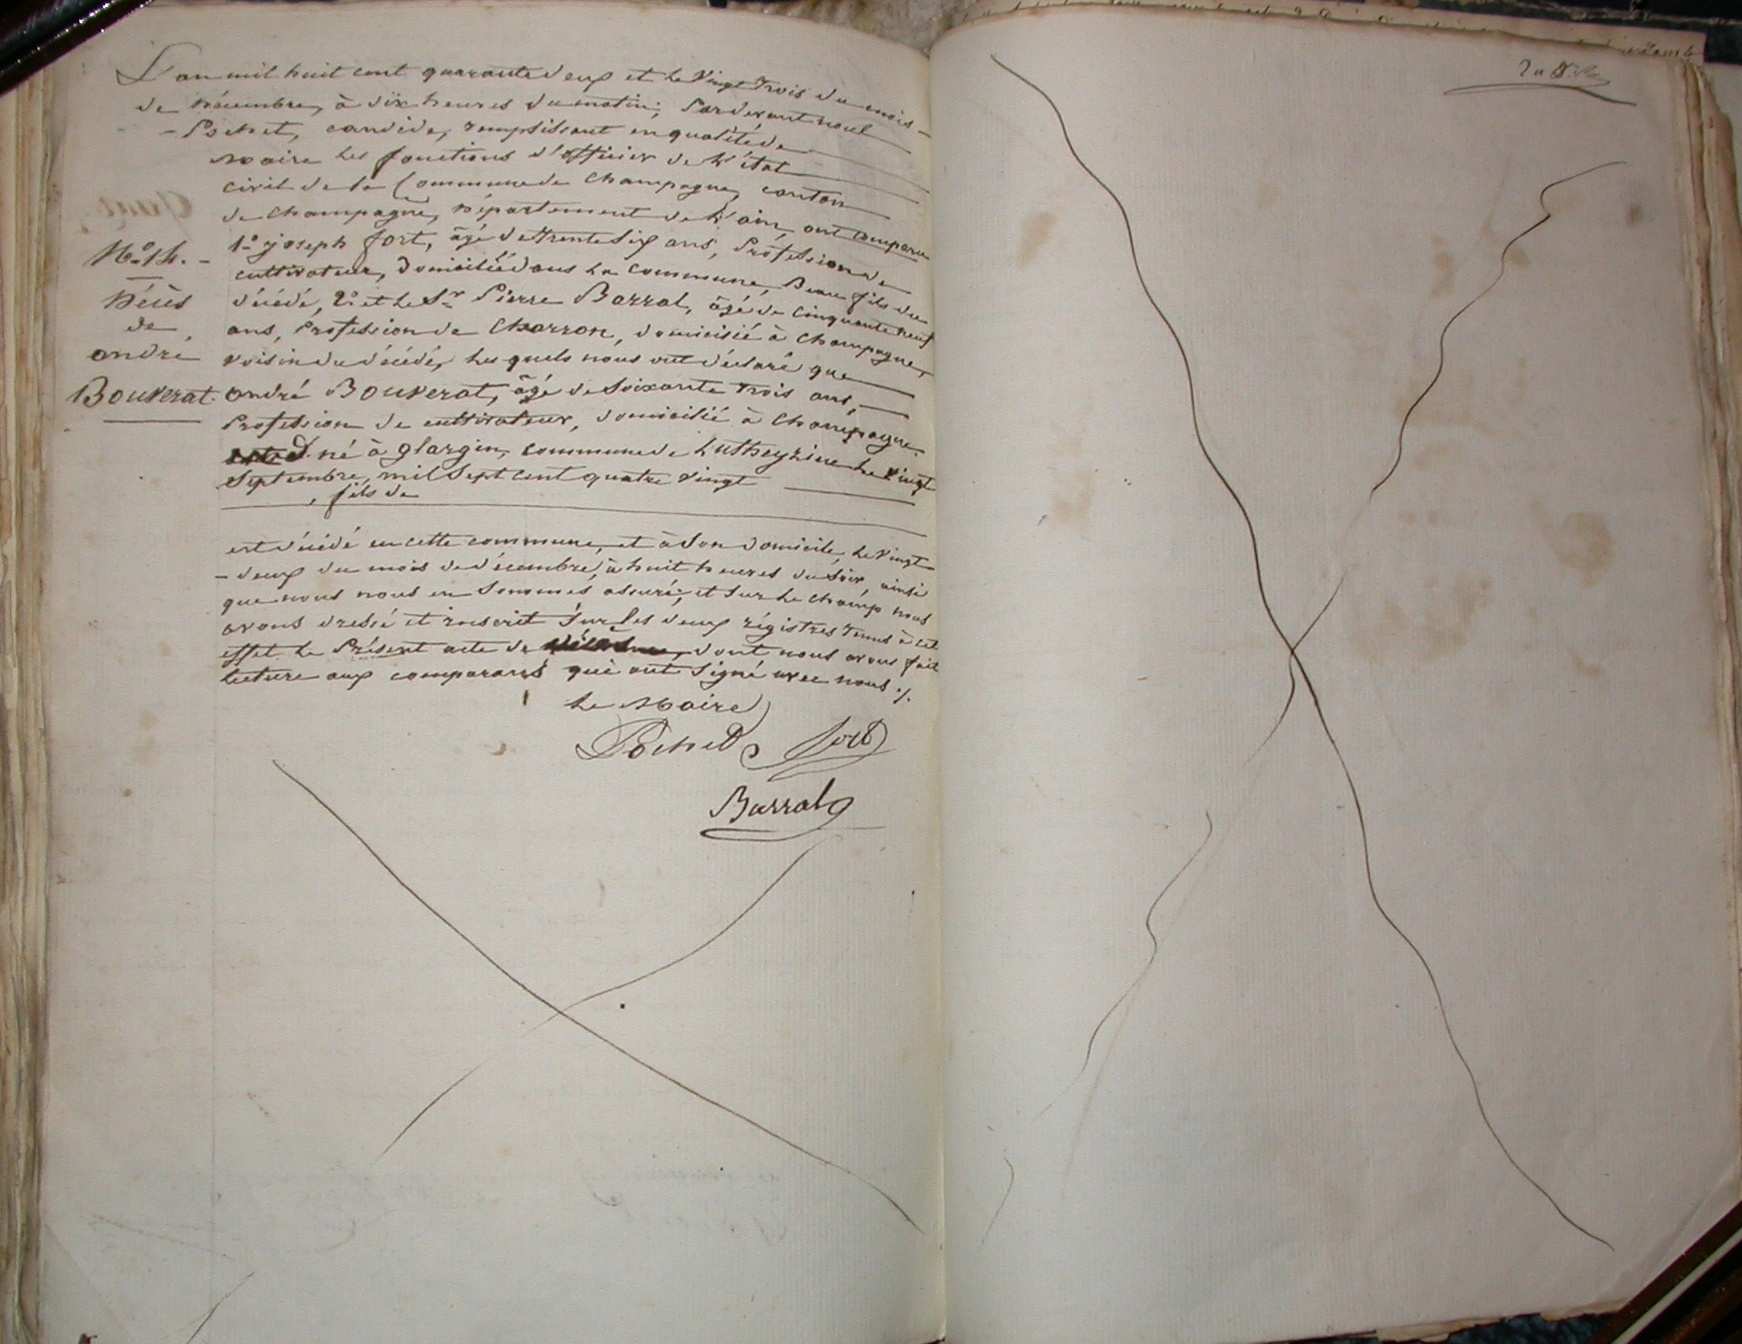 L'an mil huit cent quarante deux et le vingt trois du mois
de Décembre, à dix heures du matin; Pardevant nous
Pochet, candide, remplissant en qualité de
Maire les fonctions d'officier de l'état
civil de la Commune de Champagne, canton
de Champagne, Département de l'ain, ont comparu
1º joseph fort, âgé de trente six ans, Profession de
cultivateur, Domicilié dans la commune, Beau fils du
décédé, 2º et le Sr Pierre Barral, âgé de cinquante neuf
ans, Profession de Charron, domicilié à Champagne,
voisin du décédé, les quels nous ont déclaré que
andré Bouverat, âgé de soixante trois ans,
Profession de cultivateur, domicilié à Champagne
né à glargin, commune de Lutheyzieu le vingt
Septembre, mil Sept cent quatre vingt
, fils de
est décédé en cette commune, et à Son domicile, le vingt
- deux du mois de décembre, à huit heures du Soir, ainsi
que nous nous en Sommes assuré; et Sur le champ nous
avons dressé et inscrit Sur les deux régistres tenus à cet
effet le Présent acte de dont nous avons fait
lecture aux comparans qui ont Signé avec nous ./.
Le Maire
Pochet fort
Barral
Nº 14. -
Décès
de
andré
Bouverat.